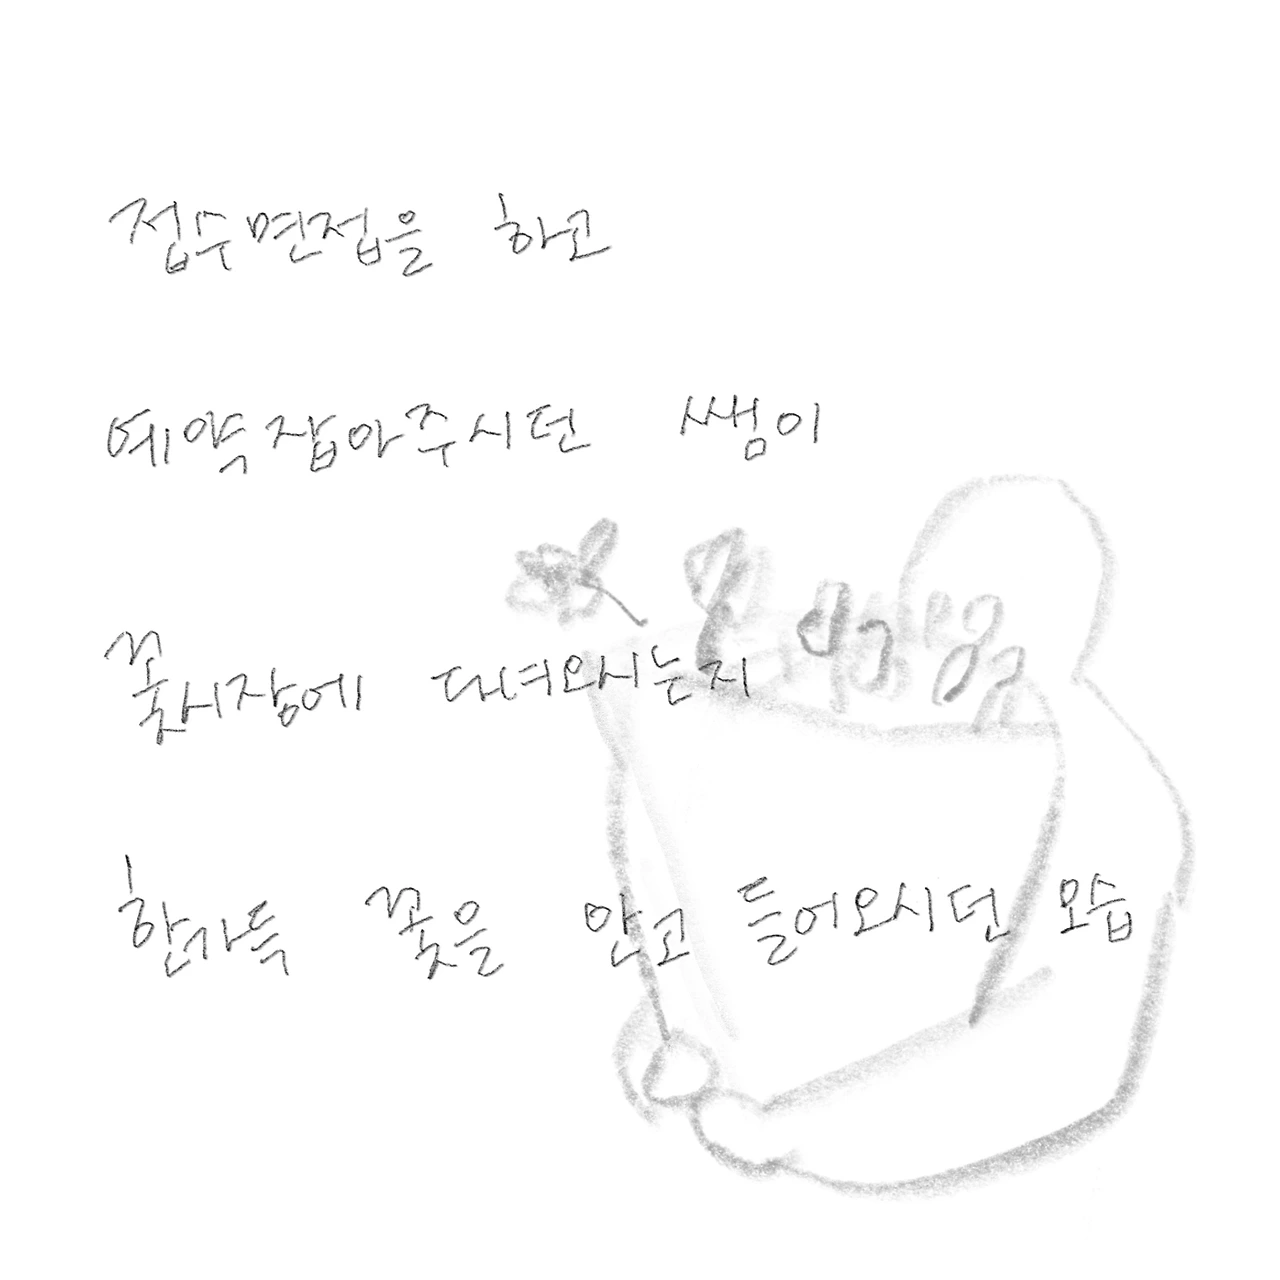 접수면접을 하고
예약잡아주시던 쌤이
꽃시장에 다녀오시는지
한가득 꽃을 안고 들어오시던 모습